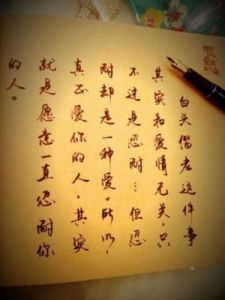 白头偕老这件事
其实和愛情无关，只
不过是忍耐…但忍
耐却是一种愛。所以，
真正愛你的人，其实
就是愿意一直忍耐你
的人。